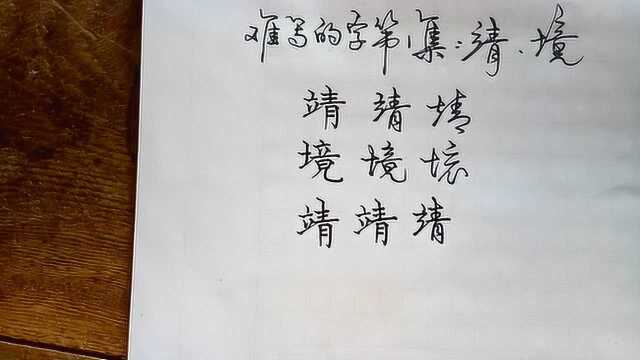 难写的字第1集:靖、境
靖 靖 靖
境 境 境
靖 靖 靖